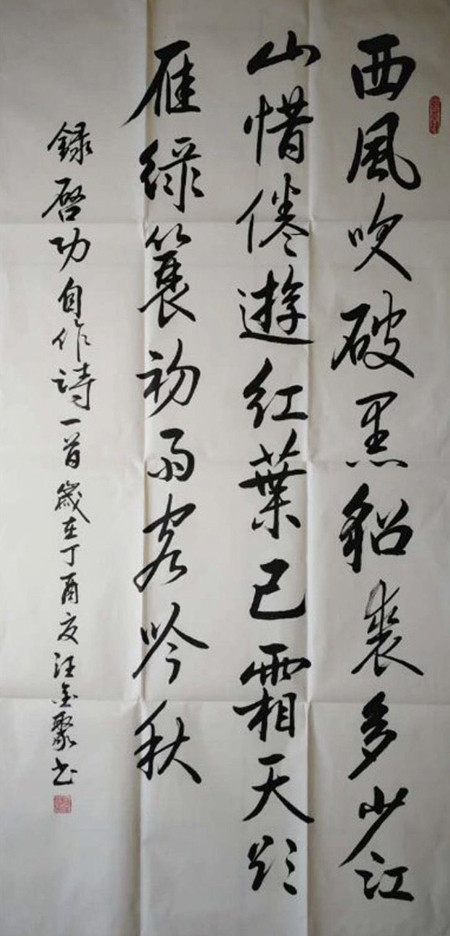 西風吹破黑貂裘多少江
山惜倦遊紅葉已霜天欲
雁綠蓑初雨客吟秋
錄啓功自作詩一首歲在丁酉夏汪金聚书